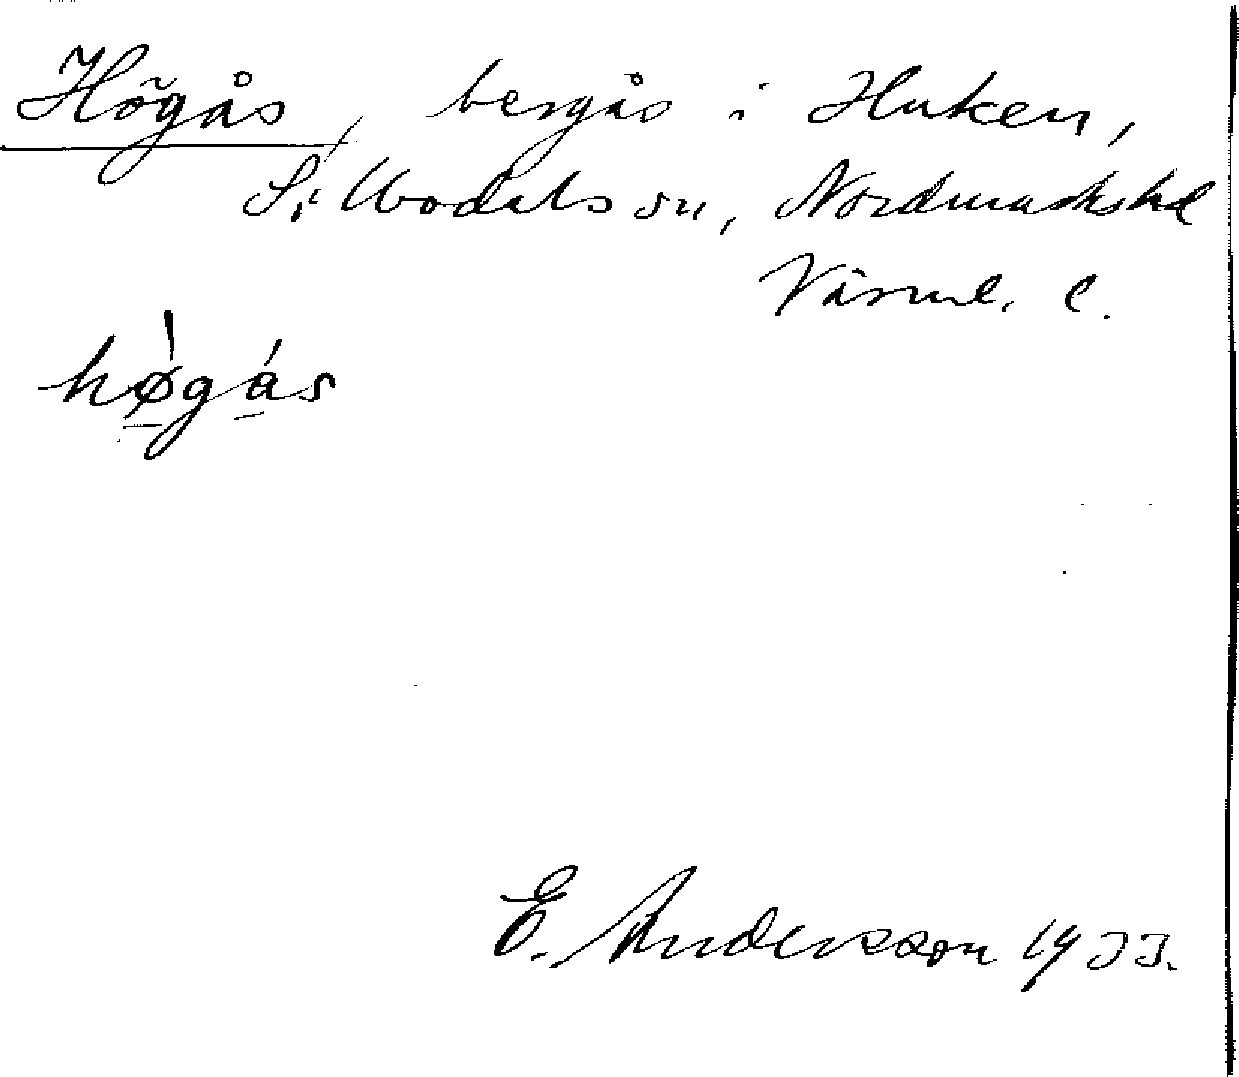 Högås, bergås i Huken,
S. Ubodals sn, Nordmarks hd
Värml. l.
hø̀gás
E. Andersson 1933.